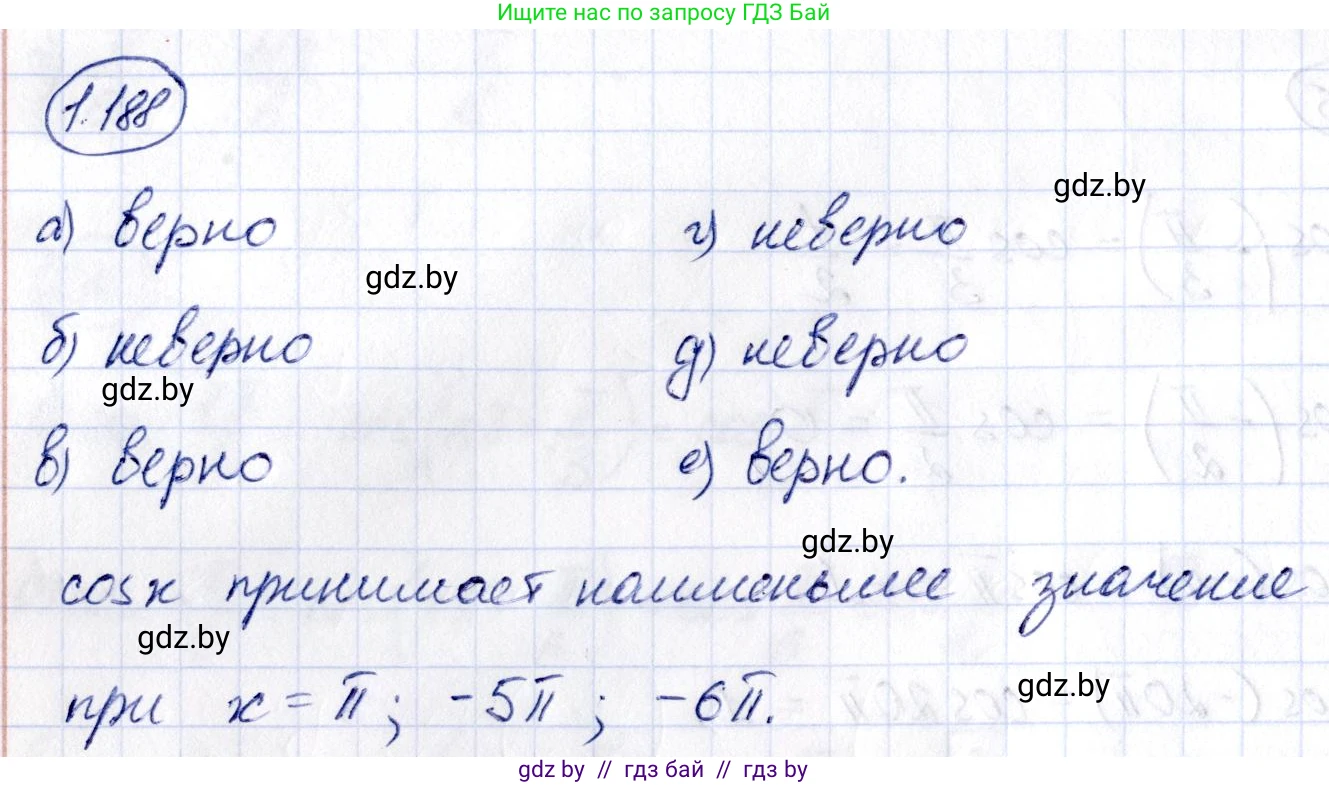 Ищите нас по запросу ГДЗ Бай
1.188
а) верно
г) неверно
gdz.by
gdz.by
б) неверно
д) неверно
gdz.by
в) верно
е) верно.
gdz.by
cos x принимает наименьшее значение
gdz.by
при x = π; -5π; -6π.
gdz.by
gdz by // гдз бай // гдз by